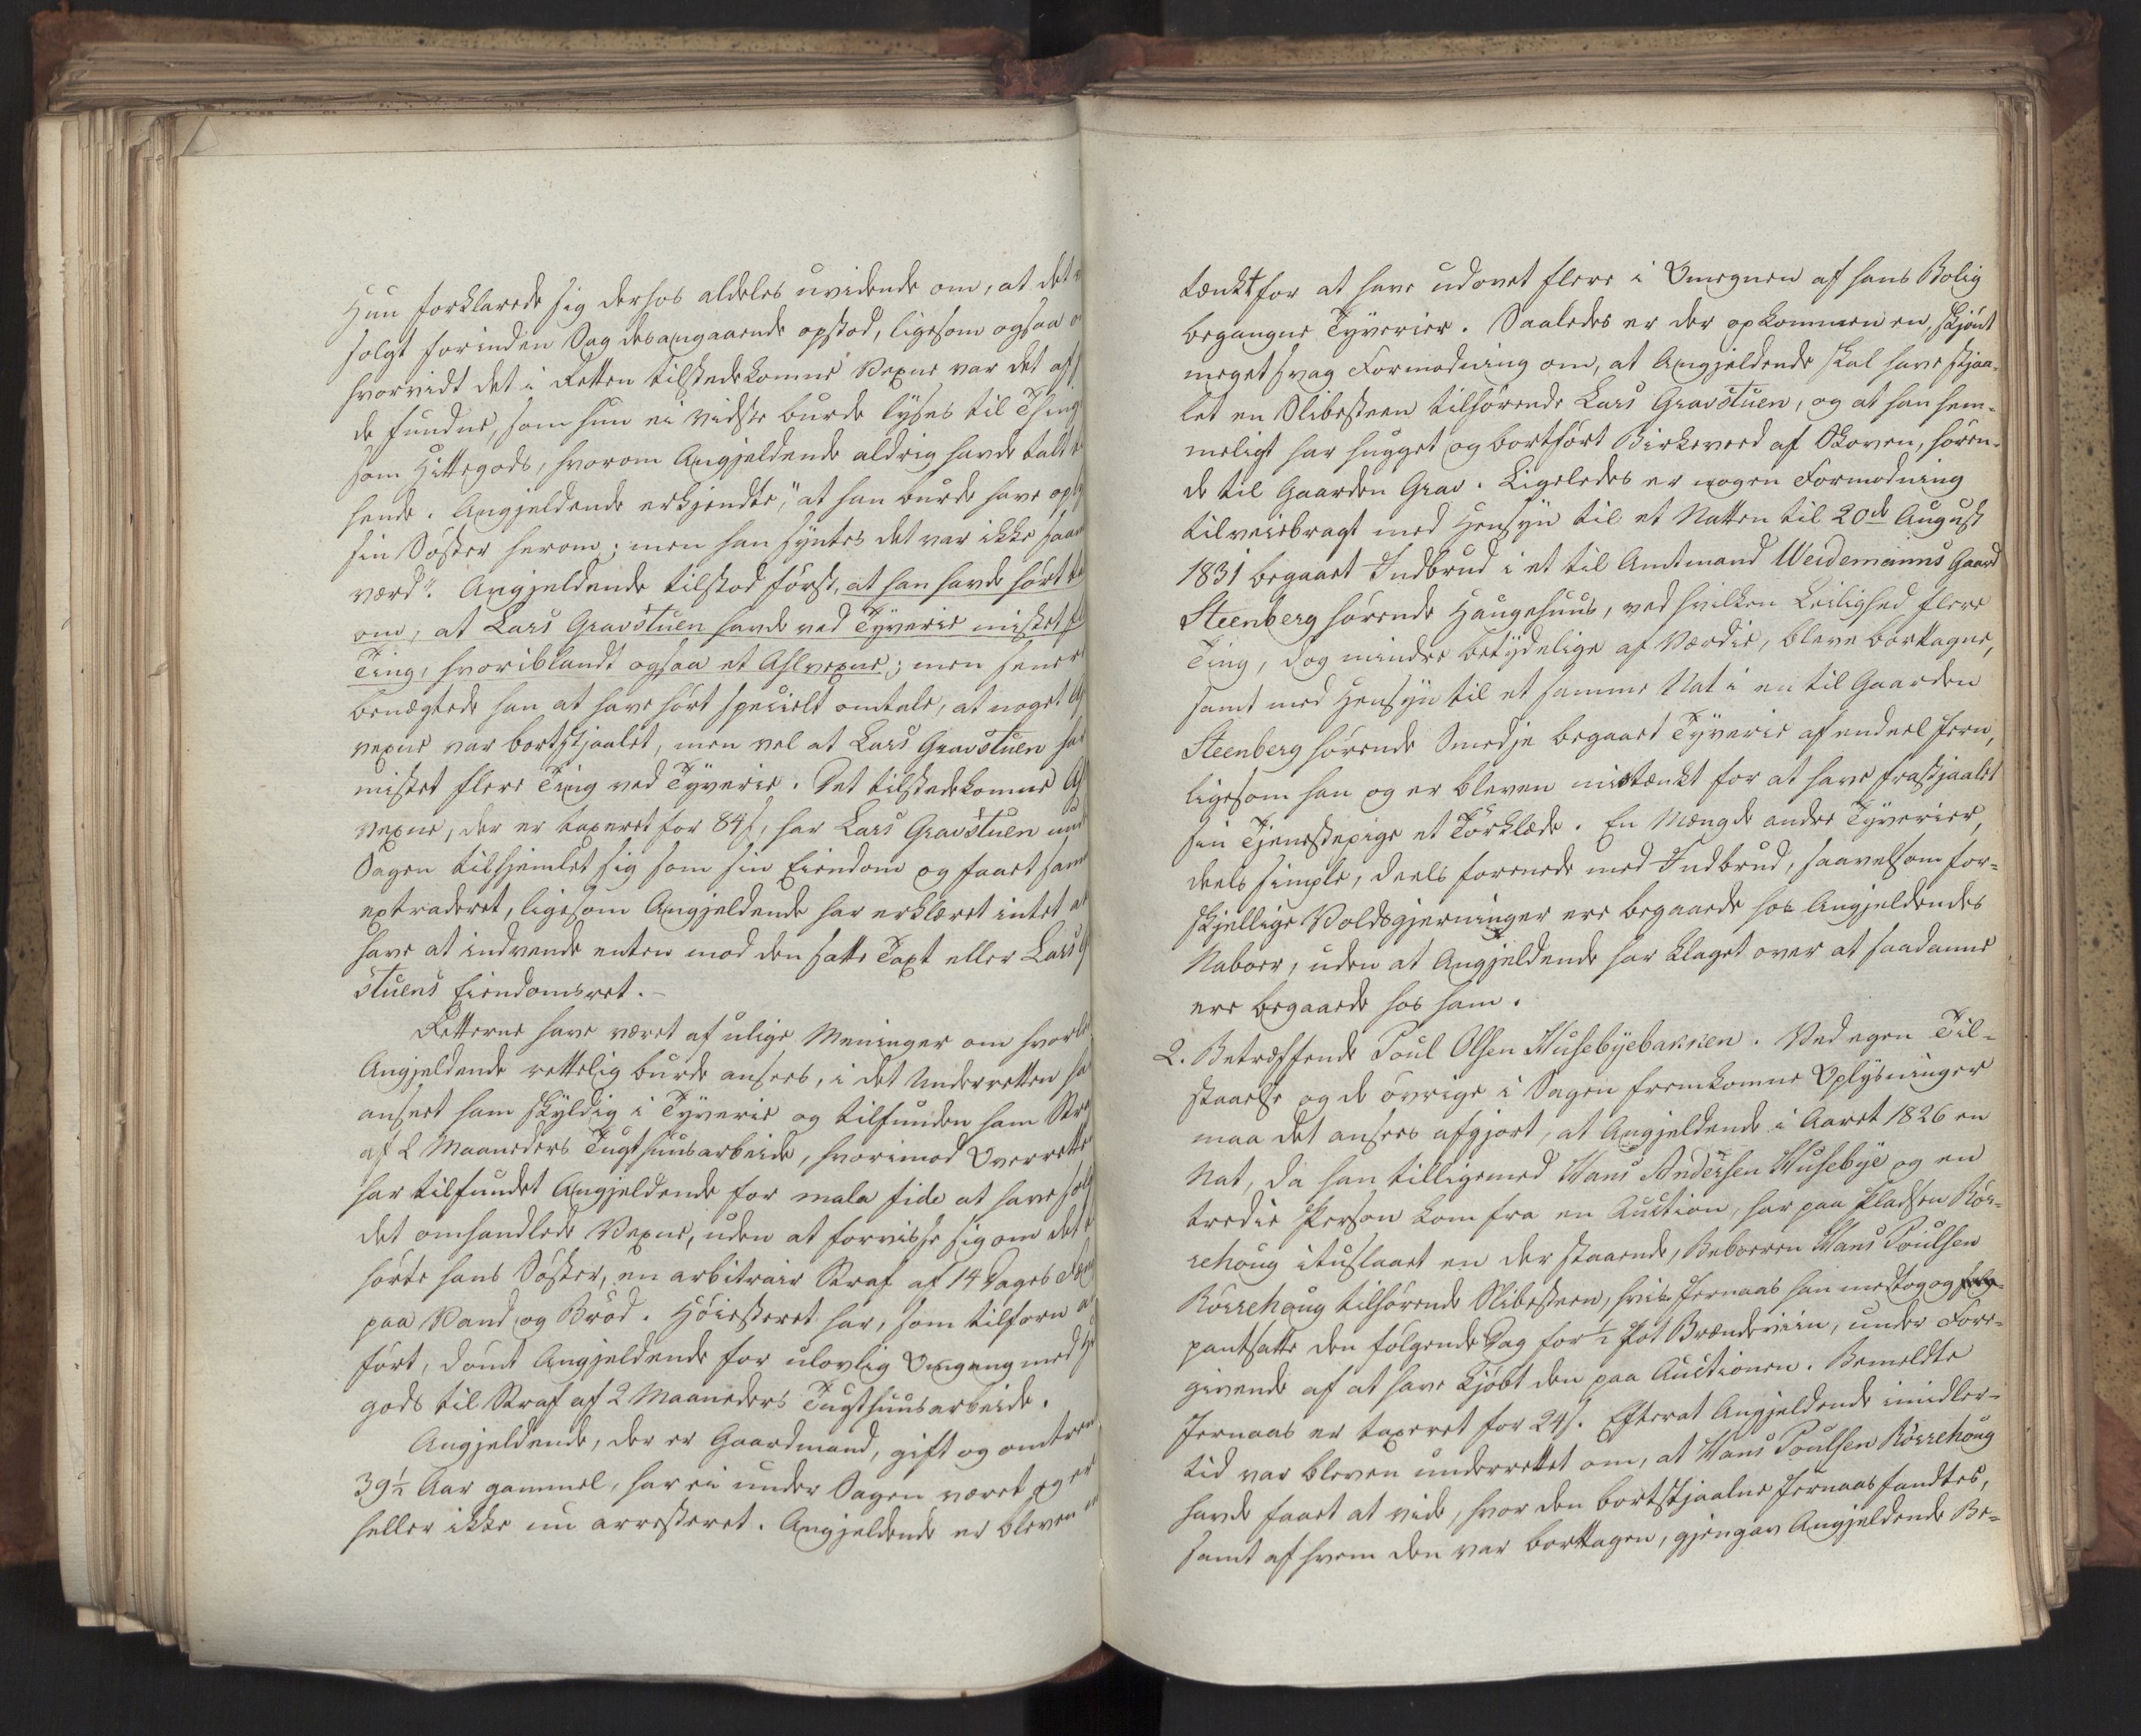 Hun forklarede sig derhos aldeles uvidende om, at det
solgt forinden Sag desangaaende opstod, ligesom ogsaa
hvorvidt det i Retten tilstedekomne Vexne var det af
de fundne, som hun ei vidste burde lyses til Thinge
som Hittegods, hvorom Angjeldende aldrig havde talt
hende. Angjeldende erkjendte, "at han burde have
sin Söster herom; men han syntes det var ikke
værd". Angjeldende tilstod först, at han havde hört
om, at Lars Gravstuen havde ved Tyverie mistet
Ting, hvoriblandt ogsaa et Ahlvexne; men
benægtede han at have hört specielt omtale, at noget
vexne var bortstjaalet, men vel at Lars Gravstuen
mistet flere Ting ved Tyverie. Det tilstedekomne
vexne, der er taxeret for 84 s, har Lars Gravstuen
Sagen tilhjemlet sig som sin Eiendom og faaet
extraderet, ligesom Angjeldende har erklæret intet at
have at indvende enten mod den satte Taxt eller Lars
stuens Eiendomsret.-
Retterne have været af ulige Meninger om
Angjeldende rettelig burde ansees, i det Underretten
anseet ham skyldig i Tyverie og tilfunden ham
af 2 Maaneders Tugthuusarbeide, hvorimod Overretten
har tilfundet Angjeldende for mala fide at have
det omhandlede Vexne, uden at forvisse sig om det
hörte hans Söster, en arbitrair Straf af 14 Dages
paa Vand og Bröd. Höiesteret har, som tilforn
fört, dömt Angjeldende for ulovlig Omgang med
gods til Straf af 2 Maaneders Tugthuusarbeide.
Angjeldende, der er Gaardmand, gift og omtrent
39½ Aar gammel, har ei under Sagen været og er
heller ikke nu arresteret. Angjeldende er bleven
tænkt for at have udövet flere i Omegnen af hans Bolig
begangne Tyverier. Saaledes er der opkommen en, skjönt
meget svag Formodning om, at Angjeldende skal have stjaa-
let en Slibesteen tilhörende Lars Gravstuen, og at han hem-
meligt har hugget og bortfört Birkeveed af Skoven, hören-
de til Gaarden Grav. Ligeledes er nogen Formodning
tilveiebragt med Hensyn til et Natten til 20de August
1831 begaaet Indbrud i et til Amtmand Weidemanns Gaard
Steenberg hörende Haugehuus, ved hvilken Leilighed flere
Ting, dog mindre betydelige af Værdie, bleve borttagne,
samt med Hensyn til et samme Nat i en til Gaarden
Steenberg hörende Smedje begaaet Tyverie af endeel Jern,
ligesom han og er bleven mistænkt for at have frastjaalet
sin Tjenestepige et Törklæde. En Mængde andre Tyverier,
deels simple, deels forenede med Indbrud, saavelsom for-
skjellige Voldsgjerninger ere begaaede hos Angjeldendes
Naboer, uden at Angjeldende har klaget over at saadanne
ere begaaede hos ham.
2. Betræffende Poul Olsen Husebyebakken. Ved egen Til-
staaelse og de övrige i Sagen fremkomne Oplysninger
maa det ansees afgjort, at Angjeldende i Aaret 1826 en
Nat, da han tilligemed Hans Andersen Husebye og en
tredie Person kom fra en Auction, har paa Pladsen Rör-
rehoug ituslaaet en der staaende, Beboeren Hans Poulsen
Rörrehoug tilhörende Slibesteen, hvis Jernaas han medtog og
pantsatte den fölgende Dag for ½ Pot Brændeviin, under Fore-
givende af at have kjöbt den paa Auctionen. Bemeldte
Jernaas er taxeret for 24 s. Efterat Angjeldende imidler-
tid var bleven underrettet om, at Hans Poulsen Rörrehoug
havde faaet at vide, hvor den bortstjaalne Jernaas fandtes,
samt af hvem den var borttagen, gjengav Angjeldende Be-